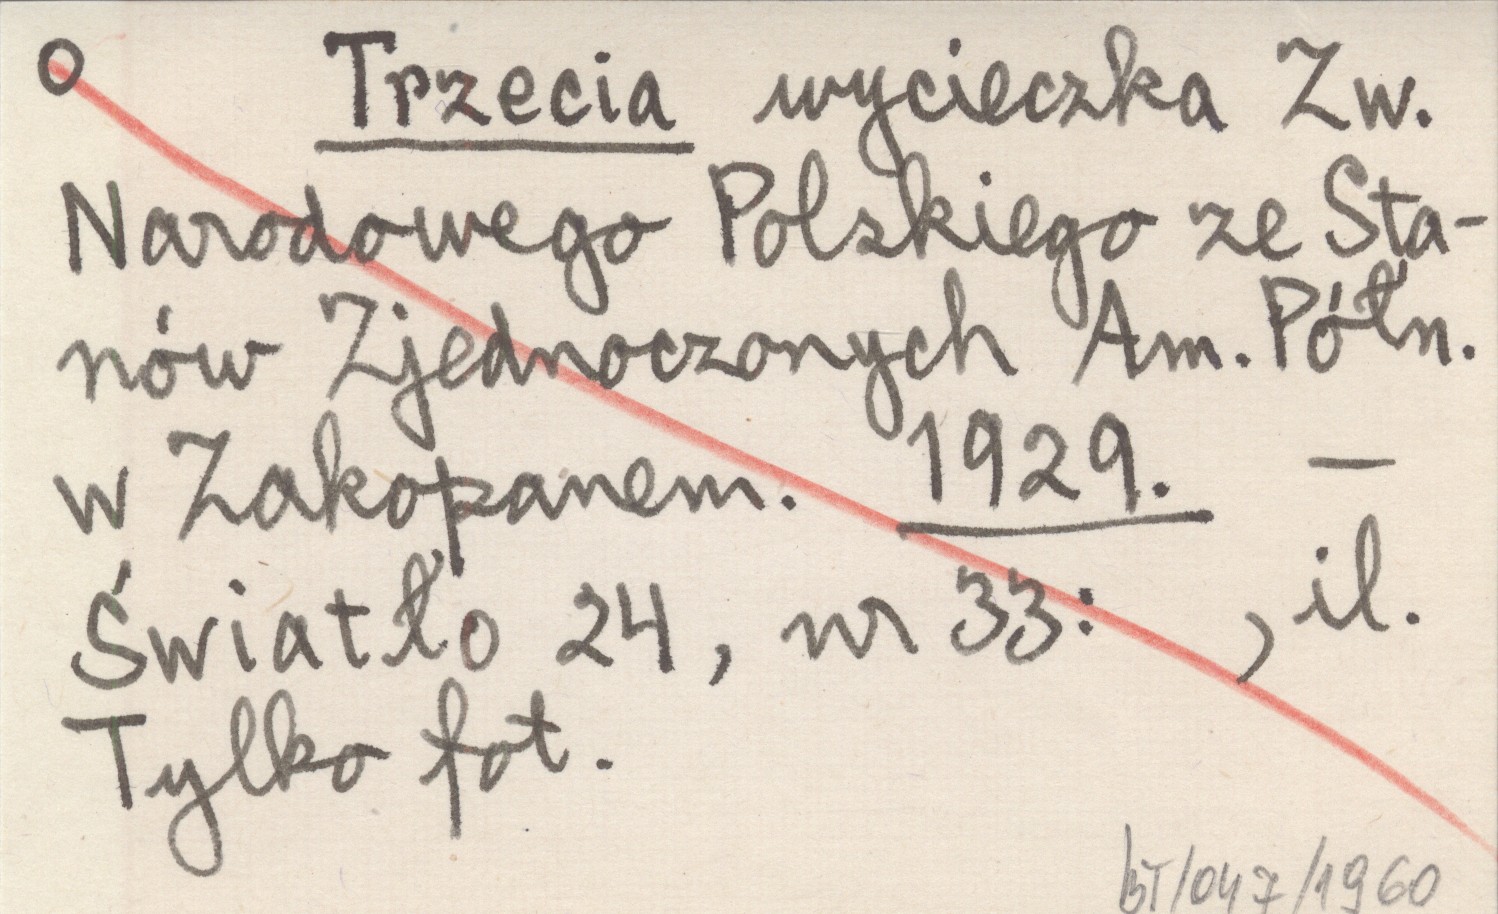 O Trzecia wycieczka Zw.
Narodowego Polskiego ze Sta-
nów Zjednoczonych Am. Półn.
w Zakopanem. 1929. —
Światło 24, nr 33: , il.
Tylko fot.
BT/047/1960